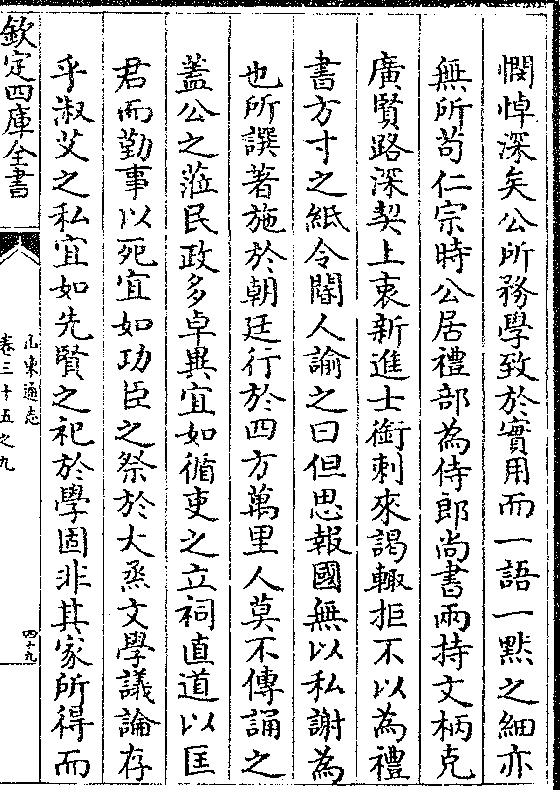 憫悼深矣公所務學致於實用而一語一黙之細亦
無所苟仁宗時公居禮部為侍郎尚書兩持文柄克
廣賢路深契上衷新進士銜刺來謁輙拒不以為禮
書方寸之紙令閽人諭之曰但思報國無以私謝為
也所譔著施於朝廷行於四方萬里人莫不傳誦之
蓋公之蒞民政多卓異宜如循吏之立祠直道以匡
君而勤事以死宜如功臣之祭於大烝文學議論存
乎淑艾之私宜如先賢之祀於學固非其家所得而
欽定四庫全書
山東通志
卷三十五之九
四十九